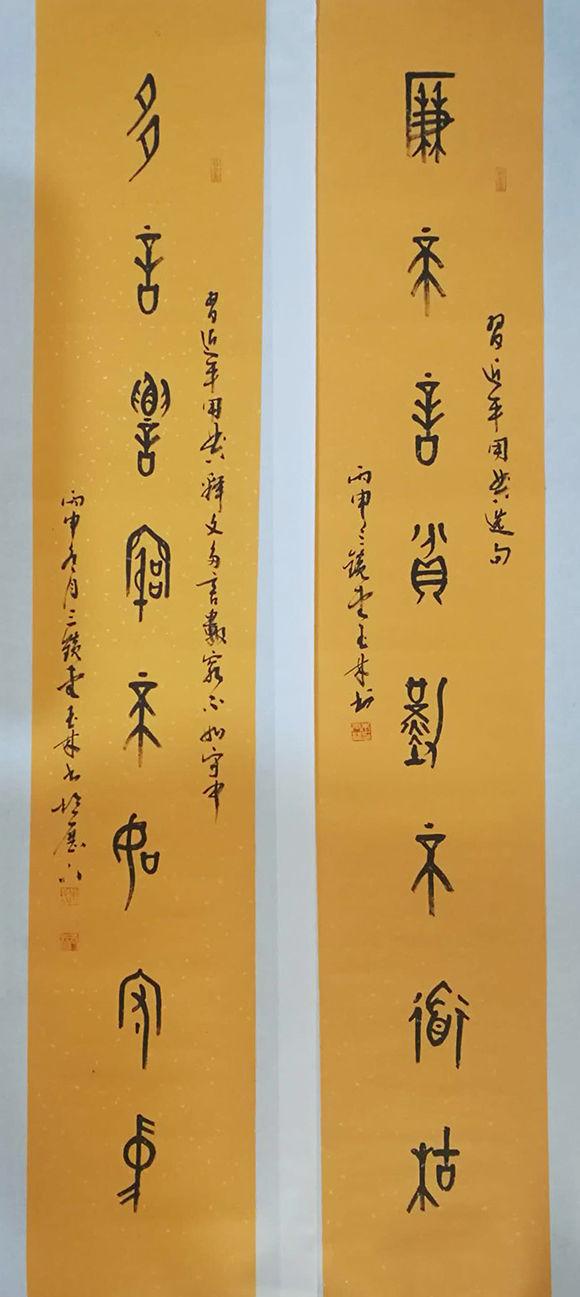 習近平用典選句
廉不言貧勤不道枯
丙申三鏡堂玉林書
習近平用典釋文多言數窮不如守中
多言數窮不如守中
丙申九月三鏡堂玉林書於